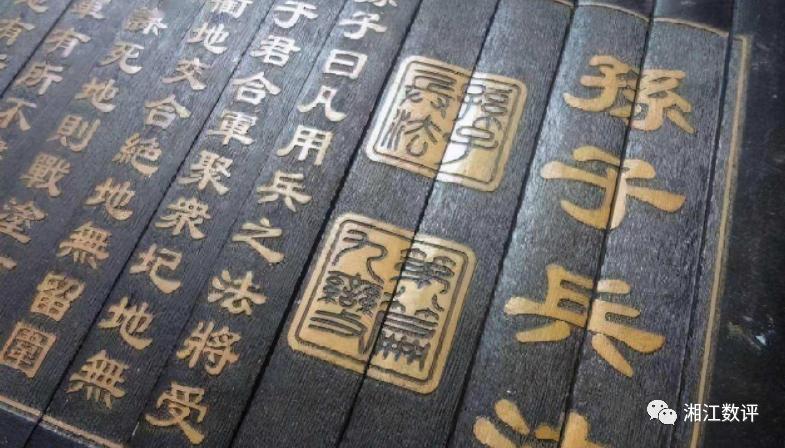 孫子兵
孫子
兵法
第八篇
九變
孫子曰凡用兵之法將受
於君合軍聚衆圮地無
衢地交合絕地無留圍
謀死地則戰塗
軍有所不
地有所
湘江数评